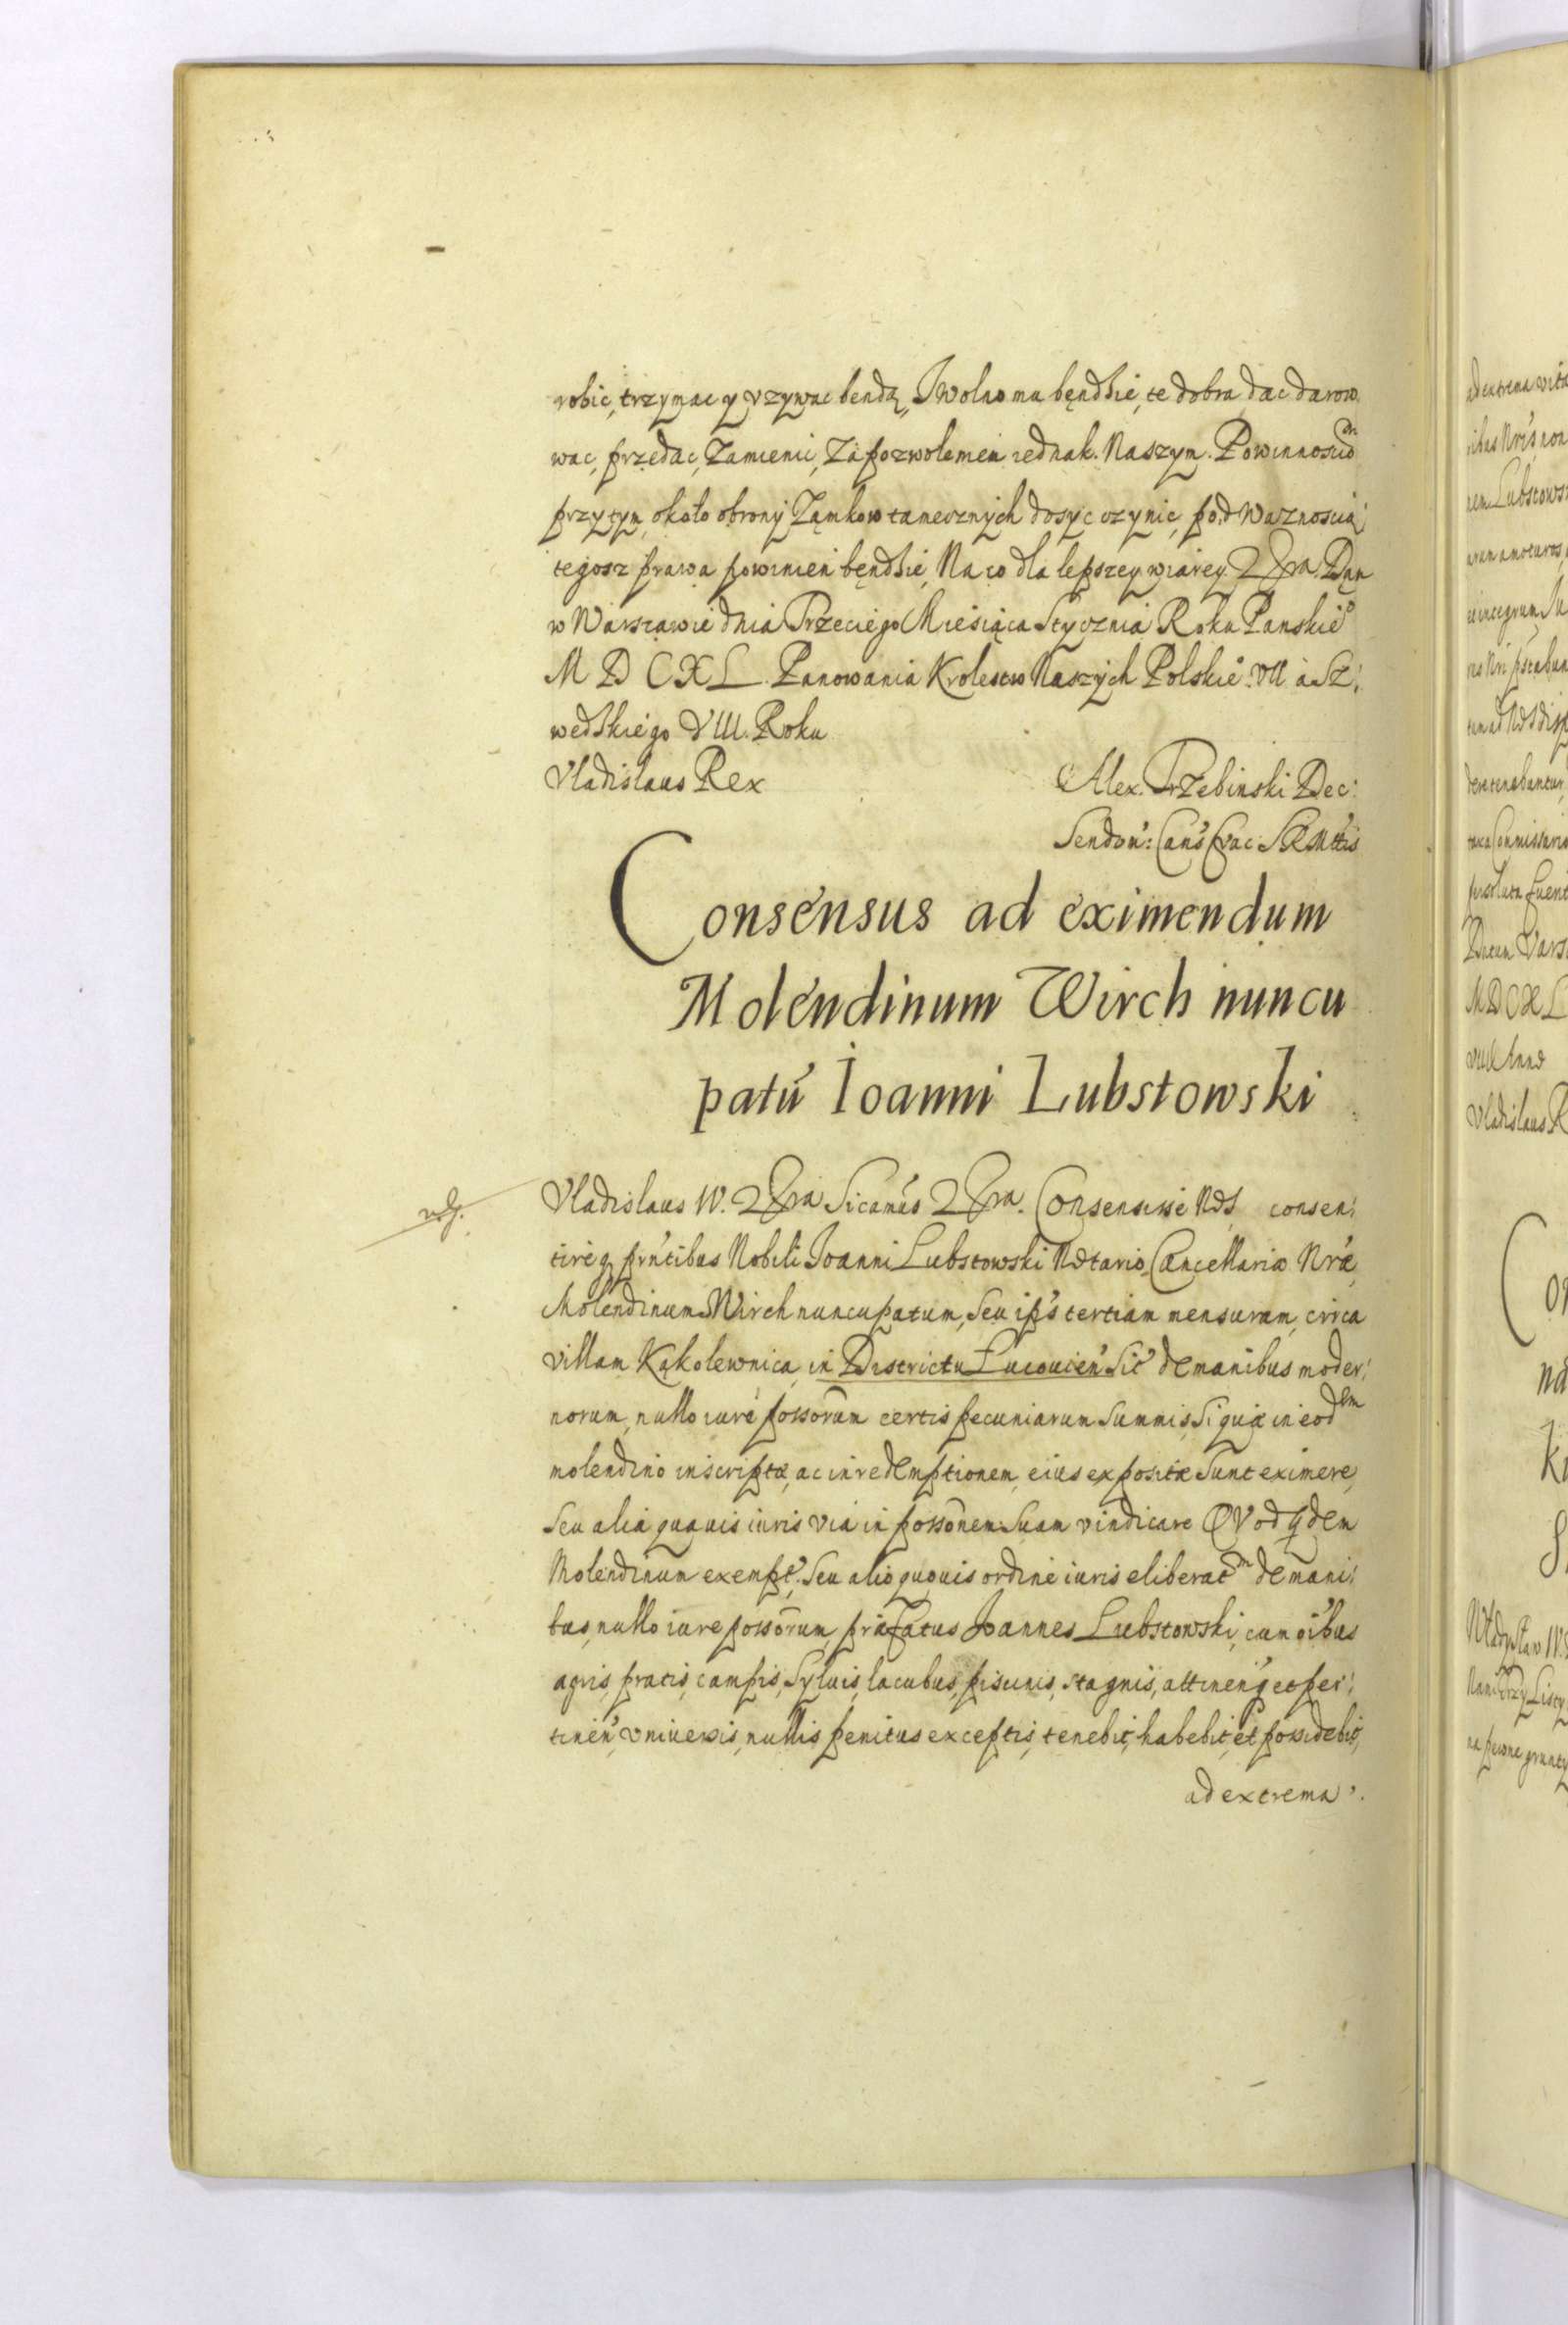 robic, trzymac y vzywac bendą, I wolno mu będzie, te dobra dac darow
wac, przedac, Zamienic, Za pozwoleniem iednak Naszym. Powinnosciō
przytym około obrony Zamkow tamecznych dosyc czynic, pod waznoscią
tegosz prawa powinien będzie, Na co dla lepszey wiarey. Dan
w Warszawie dnia Trzeciego Miesiąca Stycznia Roku Panskiē
M D C X L. Panowania Krolestw Naszych Polskiē. VII à Sz:
wedskiego VIII. Roku
Vladislaus Rex
Alex. Trzebinski Dec:
Sendom: Can's Crac: SRMttis
Consensus ad eximendum
Molendinum Wirch nuncu
patū Ioanni Lubstowski
Vladislaus IV. Consensisse Nos consen:
tireq prn'tibus Nobili Ioanni Lubstowski Notario Cancellariæ Nræ
Molendinum Wirch nuncupatum, Seu ips' tertiam mensuram, circa
villam Kąkolewnica, in Districtu Lucouien' Sit' de manibus moder:
norum, nullo iure possorum certis pecuniarum Summis, Si quæ in eodem
molendino inscriptæ, ac in redemptionem eius expositæ Sunt eximere,
Seu alia quauis iuris via in possonem Suam vindicare QVod qdem
Molendinum exempt'. Seu alio quouis ordine iuris eliberatm de mani:
bus, nullo iure possorum, præfatus Ioannes Lubstowski, cum oi'bus
agris, pratis, campis, Syluis, lacubus, piscinis, stagnis, attinen' et per:
tinen', vniuersis, nullis penitus exceptis, tenebit, habebit, et possidebit,
ad extrema